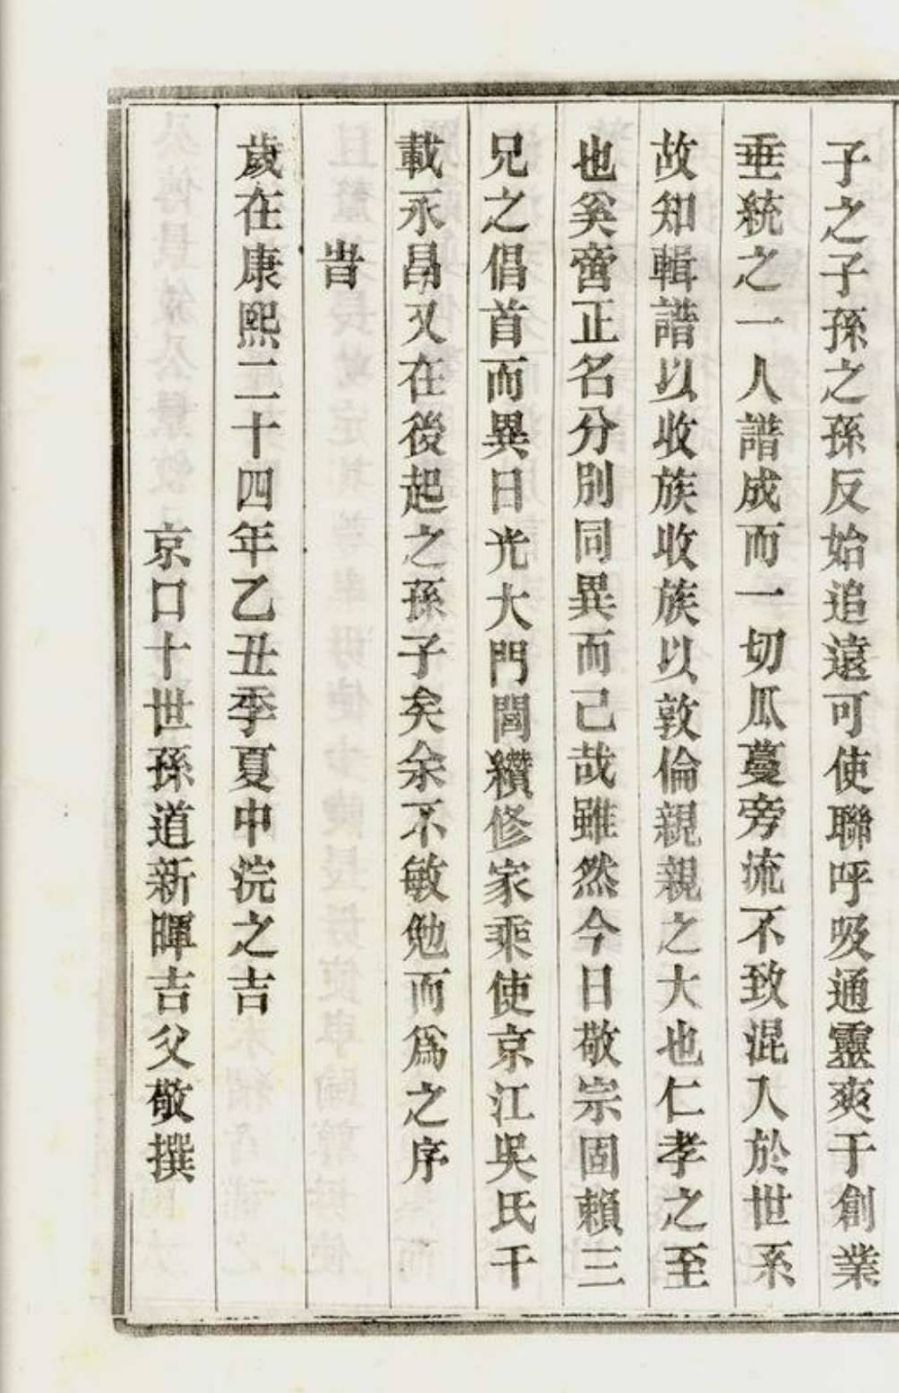 子之子孫之孫反始追遠可使聯呼吸通靈爽于創業
垂統之一人譜成而一切瓜蔓旁流不致混入於世系
故知輯譜以收族收族以敦倫親親之大也仁孝之至
也奚啻正名分別同異而己哉雖然今日敬宗固賴三
兄之倡首而異日光大門閭纘修家乘使京江吳氏千
載永昌又在後起之孫子矣余不敏勉而爲之序
旹
歲在康熙二十四年乙丑季夏中浣之吉
京口十世孫道新暉吉父敬撰